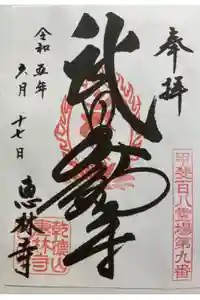 奉拝
甲斐百八霊場第九番
令和五年
六月
十七日
恵林寺
乾徳山
恵林寺